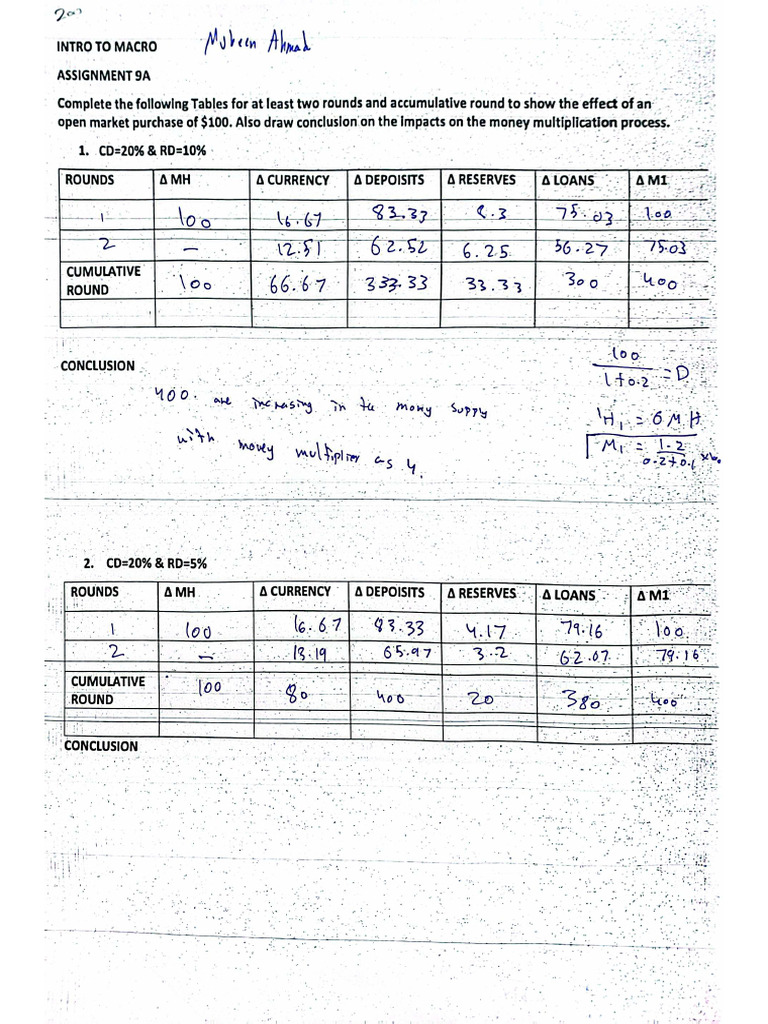 INTRO TO MACRO Mubeen Ahmad
ASSIGNMENT 9A
Complete the following Tables for at least two rounds and accumulative round to show the effect of an
open market purchase of $100. Also draw conclusion on the impacts on the money multiplication process.
1. CD=20% & RD=10%
ROUNDS Δ MH Δ CURRENCY Δ DEPOISITS Δ RESERVES Δ LOANS Δ M1
1 100 16.67 83.33 8.3 75.03 100
2 – 12.51 62.52 6.25 56.27 75.03
CUMULATIVE ROUND 100 66.67 333.33 33.33 300 400
CONCLUSION
400. are increasing in the money supply
with money multiplier as 4.
100
1+0.2 = D
= 6 M H
M1 = 1.2
0.2+0.1
2. CD=20% & RD=5%
ROUNDS Δ MH Δ CURRENCY Δ DEPOISITS Δ RESERVES Δ LOANS Δ M1
1 100 16.67 83.33 4.17 79.16 100
2 – 13.19 65.97 3.2 62.07 79.16
CUMULATIVE ROUND 100 80 400 20 380 400
CONCLUSION